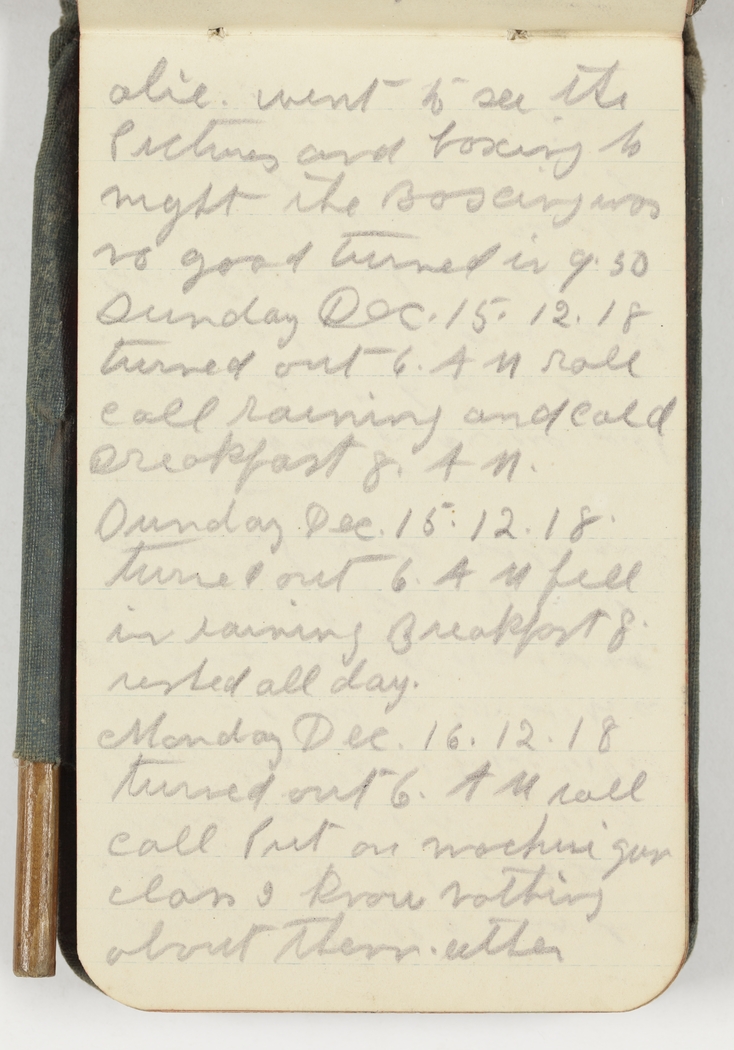 alie. went to see the
Pictures and boxing to
night the Boxing was
no good turned in 9.30
Sunday Dec. 15. 12. 18
turned out 6. A M roll
call raining and cold
Breakfast 8. A M.
Sunday Dec. 15. 12. 18.
turned out 6. A M fell
in raining Breakfast 8.
rested all day.
Monday Dec. 16. 12. 18
turned out 6. A M roll
call Put on machine gun
class I know nothing
about them.